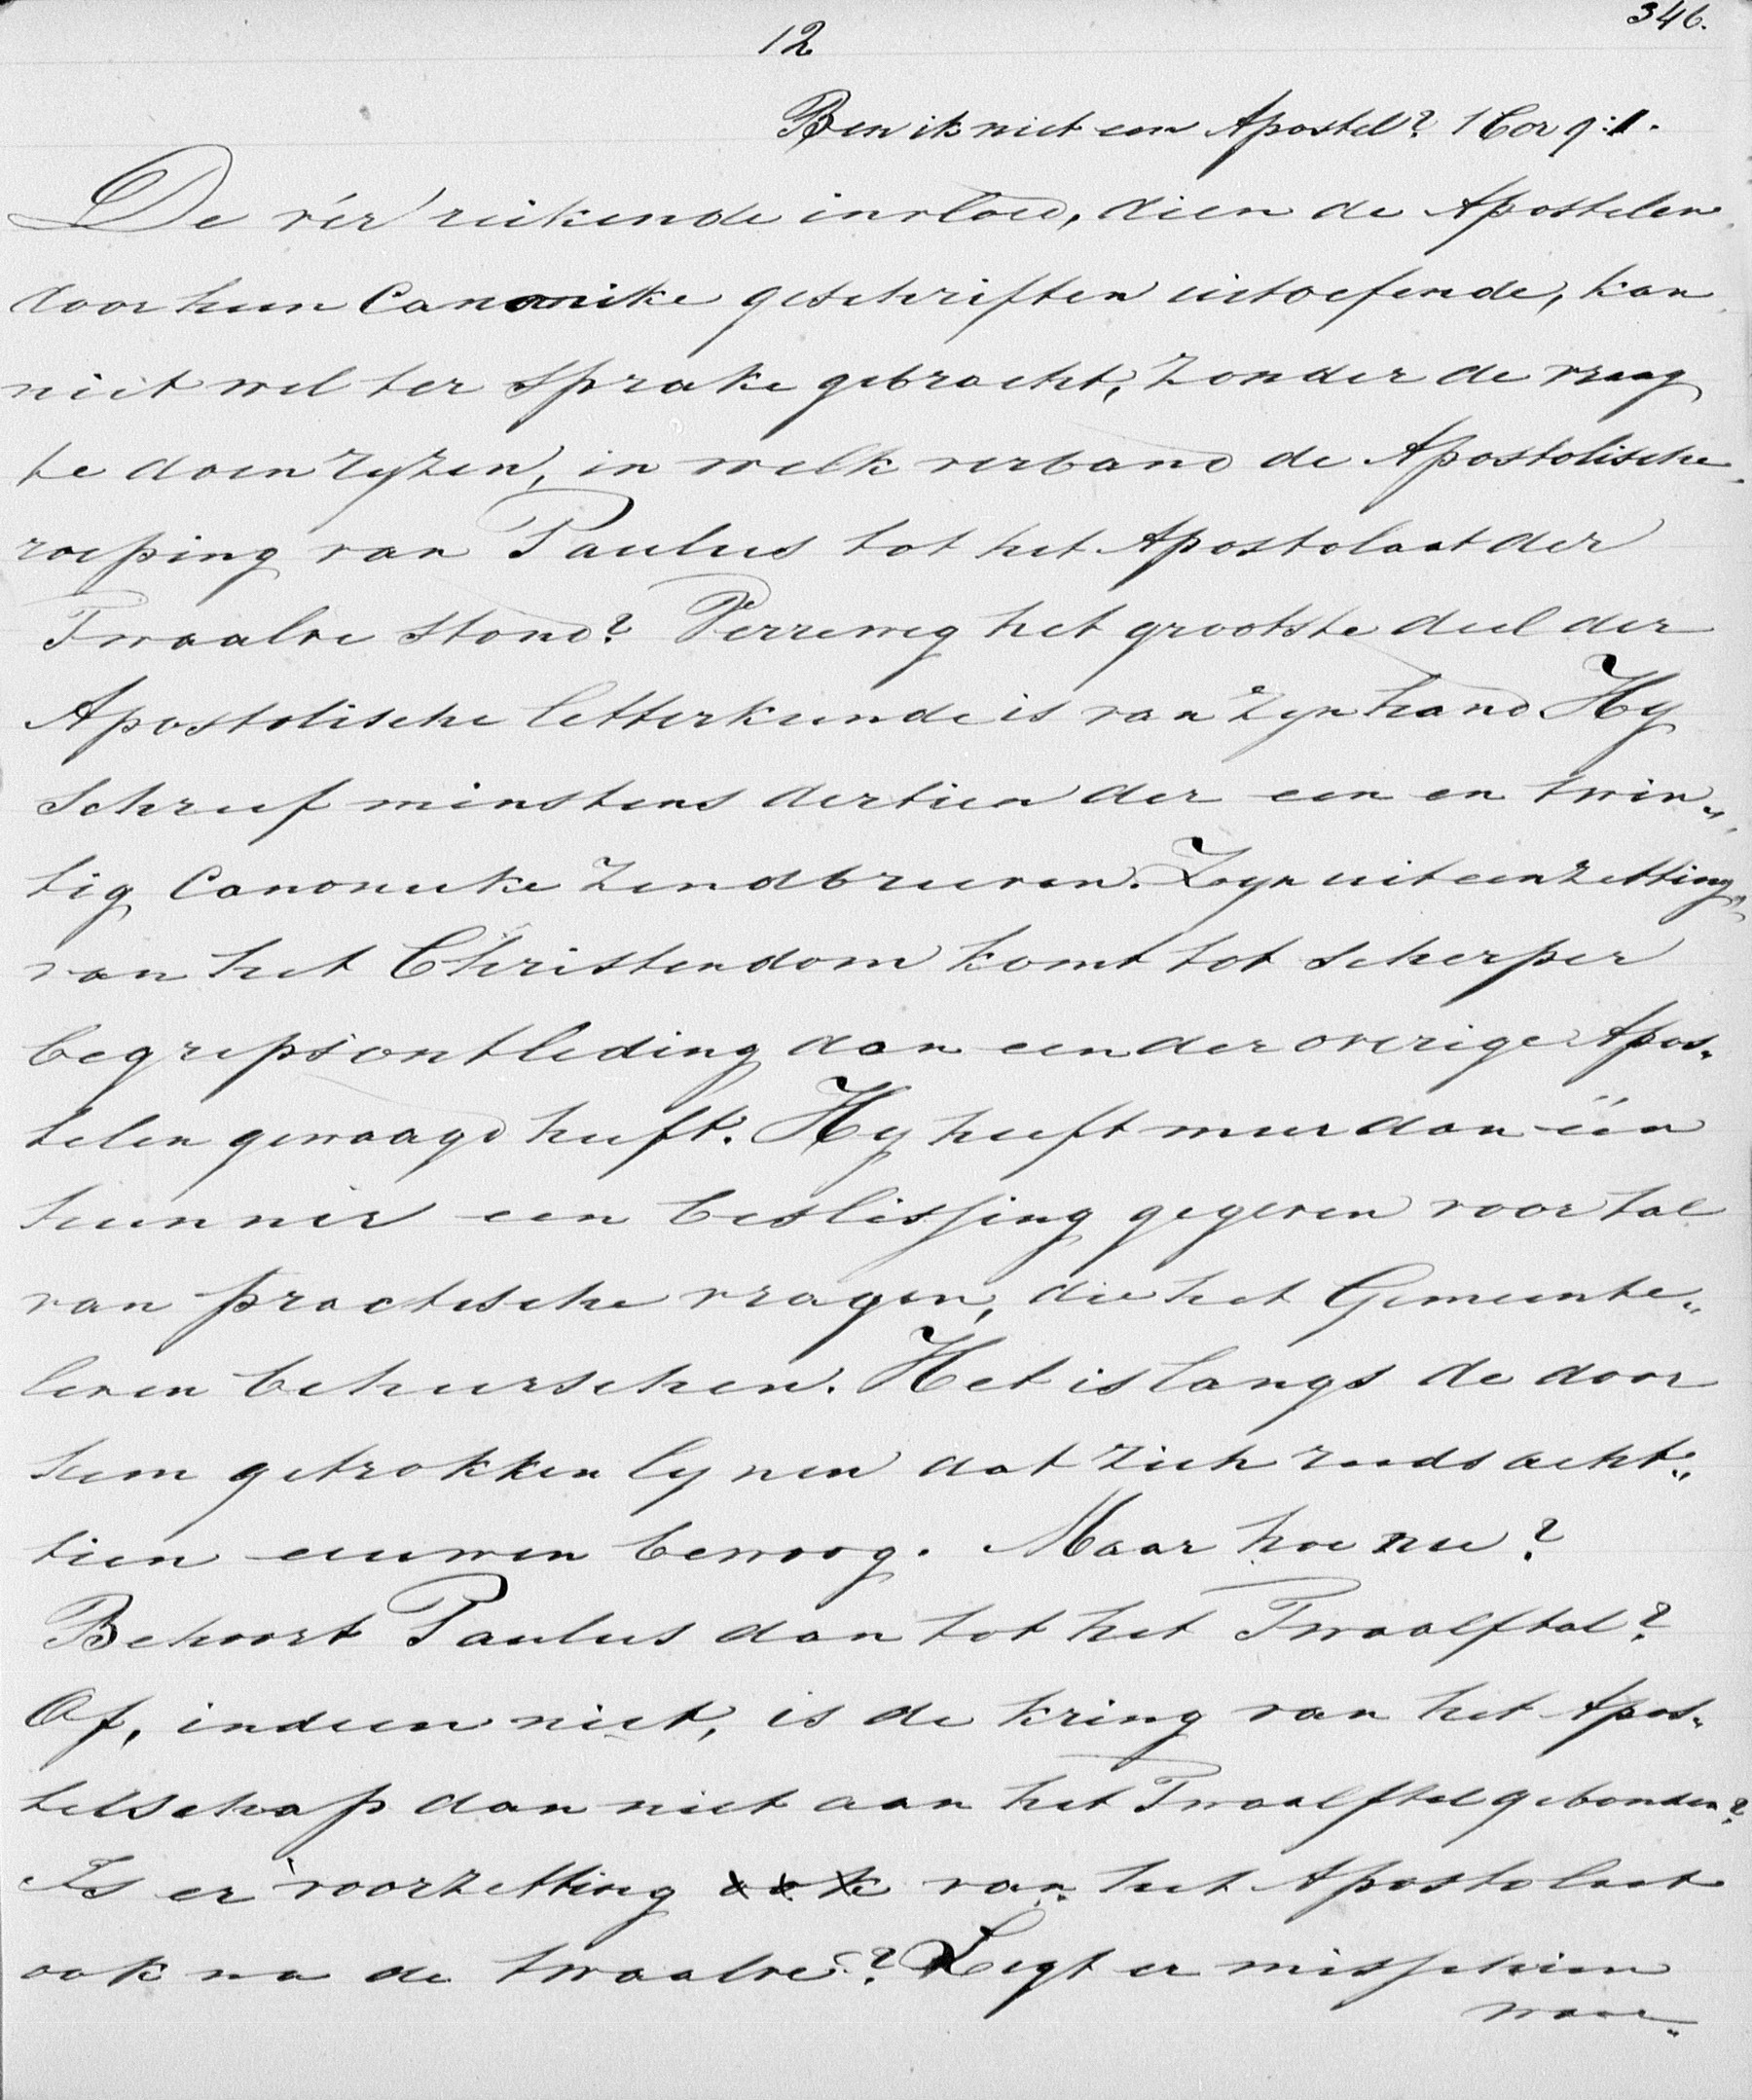 346.
12
Ben ik niet een Apostel? 1 Cor 9:1.
De vér reikende invloed, dien de Apostelen
door hun Canonike geschriften uitoefende, kan
niet wel ter sprake gebracht, zonder de vraag
te doen ryzen, in welk verband de Apostolische
roeping van Paulus tot het Apostolaat der
Twaalve stond? Verreweg het grootste deel der
Apostolische letterkunde is van zyn hand. Hy
schreef minstens dertien der een en twin„
tig Canonieke Zendbrieven. Zyn uiteenzetting
van het Christendom komt tot scherper
begripsontleding dan een der overige Apos„
telen gewaagd heeft. Hy heeft meer dan één
hunner een beslissing gegeven voor tal
van practische vragen, die het Gemeente„
leven beheerschen. Het is langs de door
hem getrokken lynen dat zich reeds acht„
tien eeuwen bewoog. Maar hoe nu?
Behoort Paulus dan tot het Twaalftal?
Of, indien niet, is de kring van het Apos„
telschap dan niet aan het Twaalftal gebonden?
Is er voortzetting van het Apostolaat
ook na de twaalve? Legt er misschien